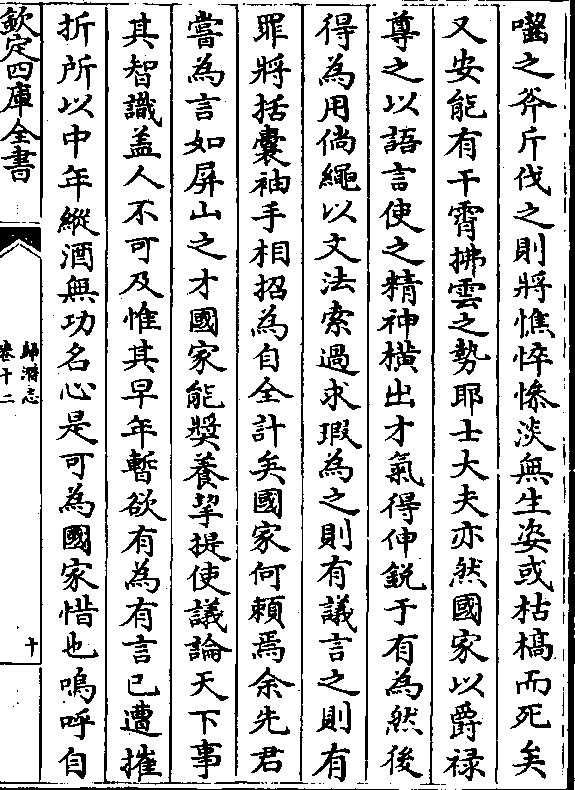 囓之斧斤伐之則將憔悴慘淡無生姿或枯槁而死矣
又安能有干霄拂雲之勢耶士大夫亦然國家以爵祿
尊之以語言使之精神橫出才氣得伸銳于有為然後
得為用倘繩以文法索過求瑕為之則有議言之則有
罪將括囊袖手相招為自全計矣國家何賴焉余先君
嘗為言如屏山之才國家能奬養挈提使議論天下事
其智識盖人不可及惟其早年暫欲有為有言已遭摧
折所以中年縱酒無功名心是可為國家惜也嗚呼自
欽定四庫全書
歸潛志
卷十二
十